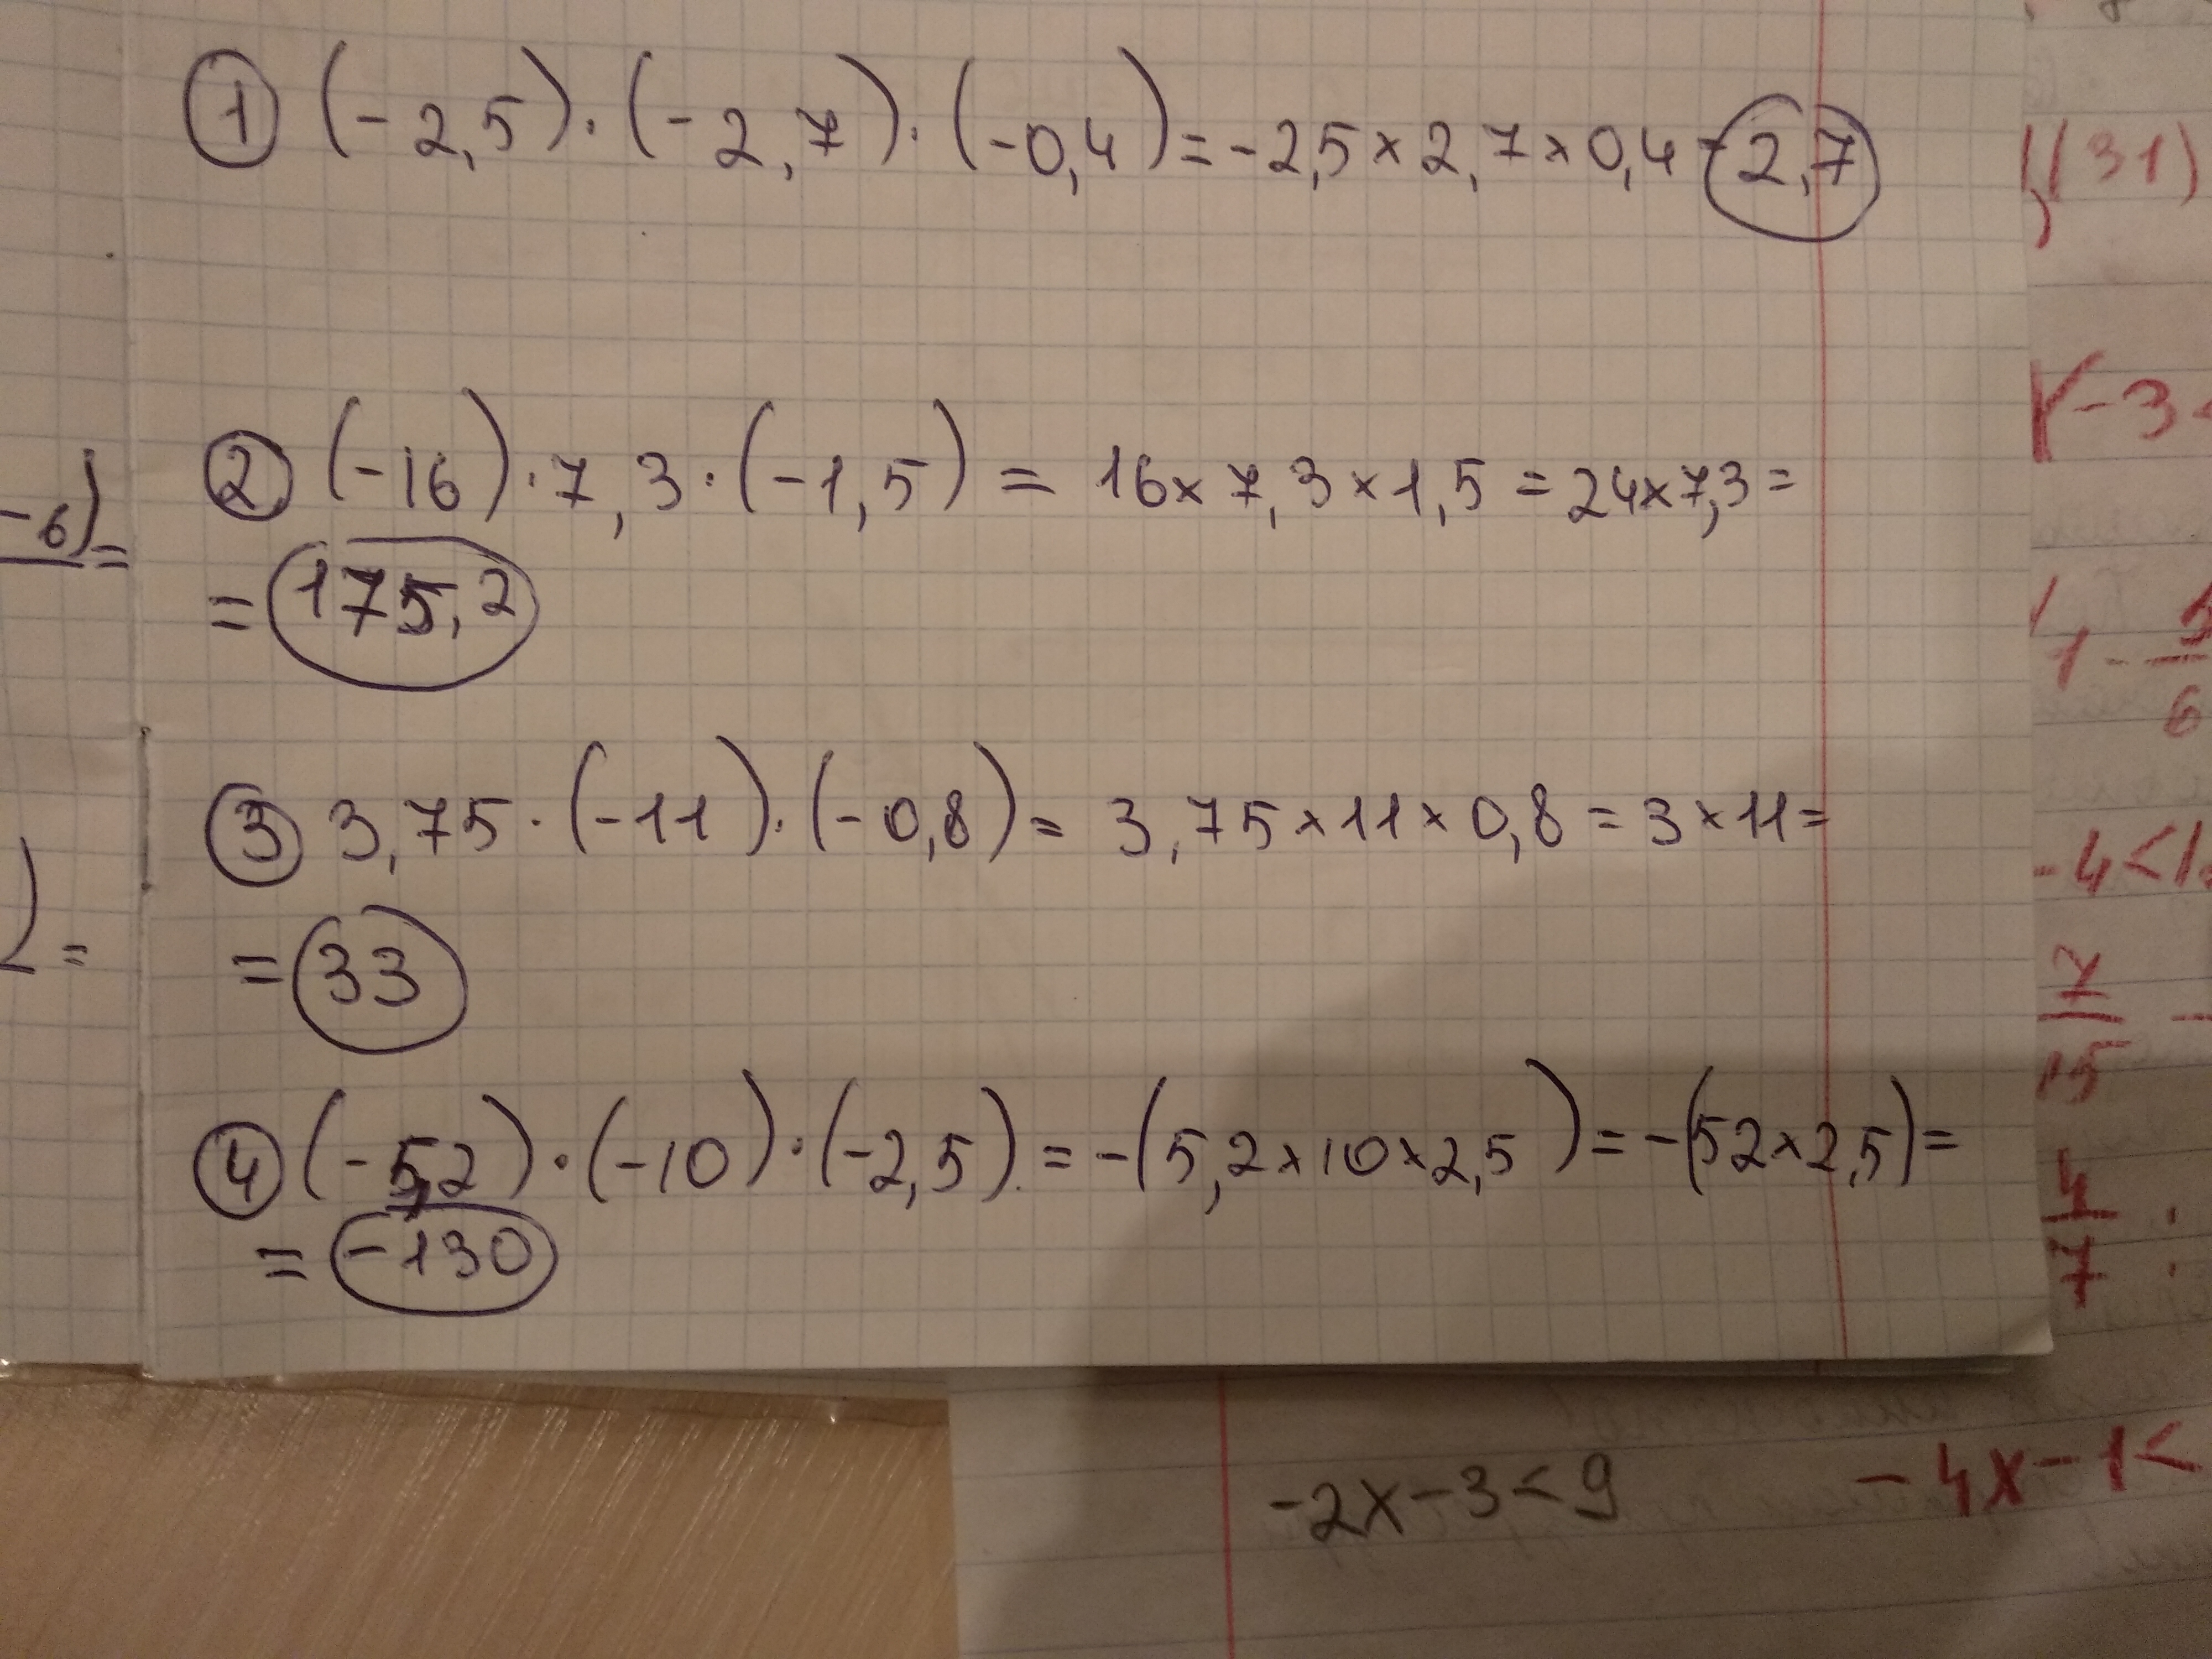 ① (-2,5)·(-2,7)·(-0,4)=-2,5×2,7×0,4-2,7
② (-16)·7,3·(-1,5)= 16×7,3×1,5=24×7,3=
=175,2
③ 3,75·(-11)·(-0,8)= 3,75×11×0,8=3×11=
=33
④ (-5,2)·(-10)·(-2,5)=-(5,2×10×2,5)=-(52×2,5)=
=-130
-6)=
)=
(31)
-3<
1-
6
-4<
7
15
4
7
:
-2x-3<9
-4x-1<